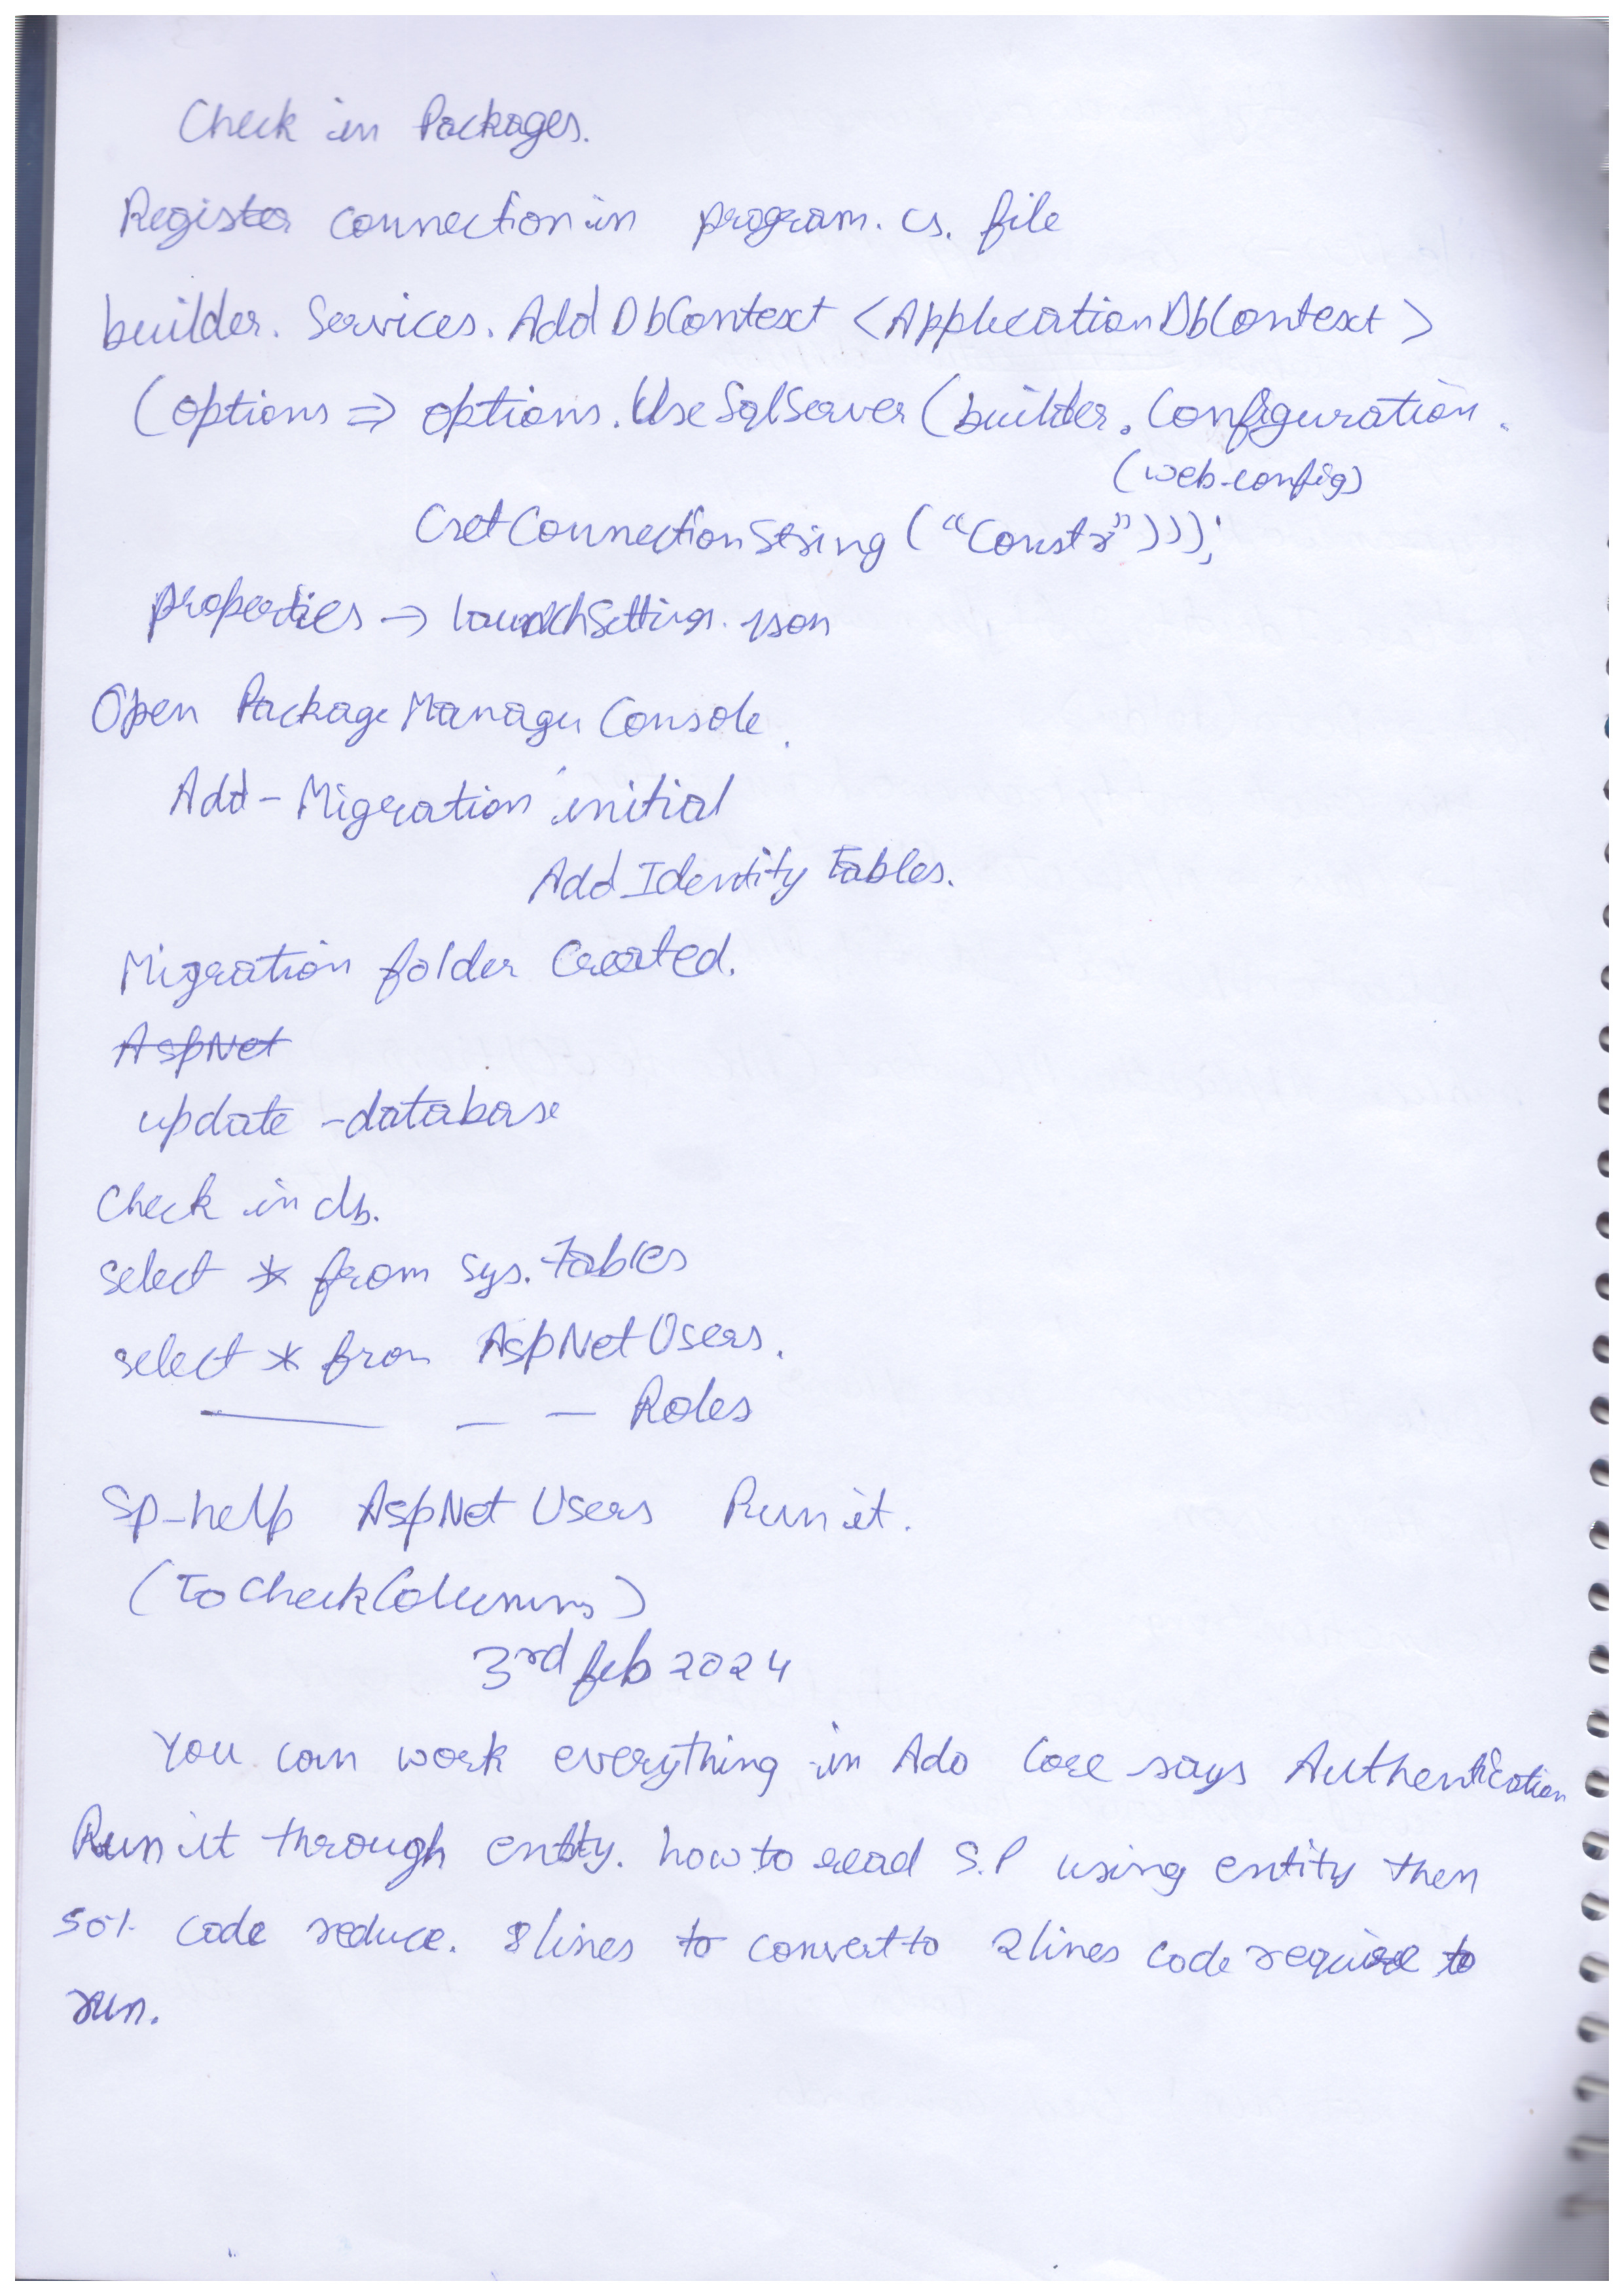 Check in Packages.
Register connection in program. cs. file
builder. Services. AddDbContext <ApplicationDbContext>
(options => options. UseSqlServer (builder. Configuration.
(web-config)
GetConnectionString ("Constr")));
properties -> launchSettings. json
Open Package Manager Console.
Add - Migration initial
Add Identity Tables.
Migration folder Created.
AspNet
update - database
Check in db.
select * from sys. Tables
select * from AspNetUsers.
——— — — Roles
Sp-help AspNet Users Run it.
(To Check Columns)
3rd feb 2024
You can work everything in Ado Core says Authentication
Run it through entity. how to read S.P using entity then
50% code reduce. 8 lines to convert to 2 lines code require to
run.